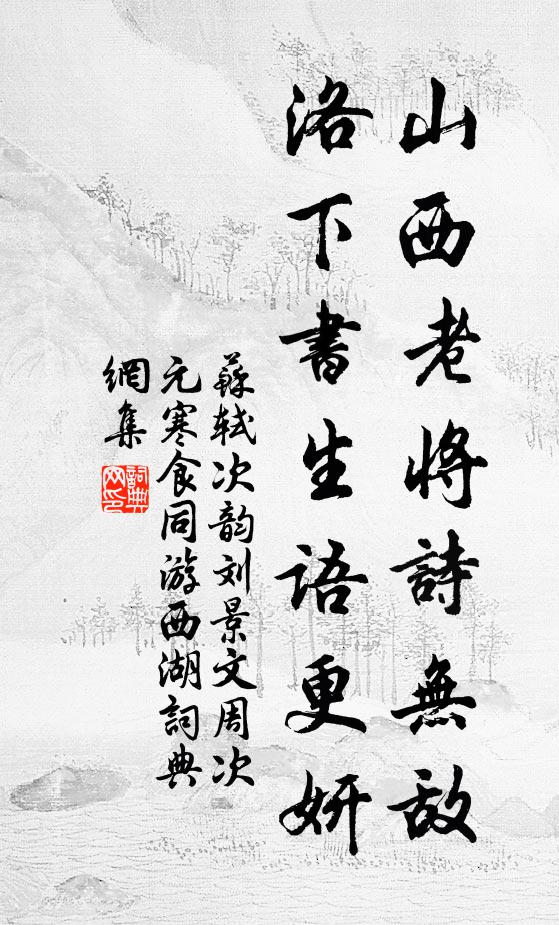 山西老将詩無敵
洛下書生語更妍
蘇轼次韵刘景文周次
元寒食同游西湖詞典
網集
詞典
网印